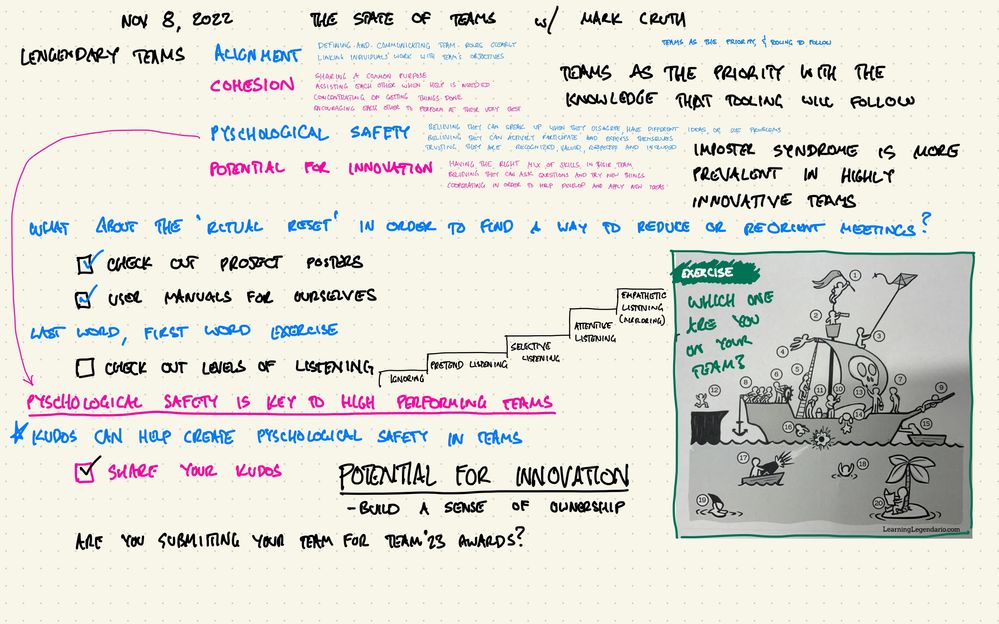 NOV 8, 2022 THE STATE OF TEAMS w/ MARK CRUTH
LENGENDARY TEAMS
ALIGNMENT
DEFINING AND COMMUNICATING TEAM ROLES CLEARLY
LINKING INDIVIDUALS' WORK WITH TEAM'S OBJECTIVES
COHESION
SHARING A COMMON PURPOSE
ASSISTING EACH OTHER WHICH HELP IS NEEDED
CONCENTRATING OF GETTING THINGS DONE
ENCOURAGING EACH OTHER TO PERFORM AT THEIR VERY BEST
TEAMS AS THE PRIORITY, & TOOLING TO FOLLOW
TEAMS AS THE PRIORITY WITH THE
KNOWLEDGE THAT TOOLING WILL FOLLOW
PYSCHOLOGICAL SAFETY
BELIEVING THEY CAN SPEAK UP WHEN THEY DISAGREE, HAVE DIFFERENT IDEAS, OR SEE PROBLEMS
BELIEVING THEY CAN ACTIVELY PARTICIPATE AND EXPRESS THEMSELVES
TRUSTING THEY ARE RECOGNIZED, VALUED, RESPECTED AND INCLUDED
POTENTIAL FOR INNOVATION
HAVING THE RIGHT MIX OF SKILLS IN THEIR TEAM
BELIEVING THEY CAN ASK QUESTIONS AND TRY NEW THINGS
COOPERATING IN ORDER TO HELP DEVELOP AND APPLY NEW IDEAS
IMPOSTER SYNDROME IS MORE
PREVALENT IN HIGHLY
INNOVATIVE TEAMS
WHAT ABOUT THE 'RITUAL RESET' IN ORDER TO FIND A WAY TO REDUCE OR REORIENT MEETINGS?
CHECK OUT PROJECT POSTERS
USER MANUALS FOR OURSELVES
LAST WORD, FIRST WORD EXERCISE
CHECK OUT LEVELS OF LISTENING
IGNORING
PRETEND LISTENING
SELECTIVE
LISTENING
ATTENTIVE
LISTENING
EMPATHETIC
LISTENING
(MIRRORING)
PYSCHOLOGICAL SAFETY IS KEY TO HIGH PERFORMING TEAMS
KUDOS CAN HELP CREATE PYSCHOLOGICAL SAFETY IN TEAMS
SHARE YOUR KUDOS
POTENTIAL FOR INNOVATION
- BUILD A SENSE OF OWNERSHIP
ARE YOU SUBMITTING YOUR TEAM FOR TEAM '23 AWARDS?
EXERCISE
WHICH ONE
ARE YOU
ON YOUR
TEAM?
1
2
3
4
5
6
7
8
9
10
11
12
13
14
15
16
17
18
19
20
LearningLegendario.com